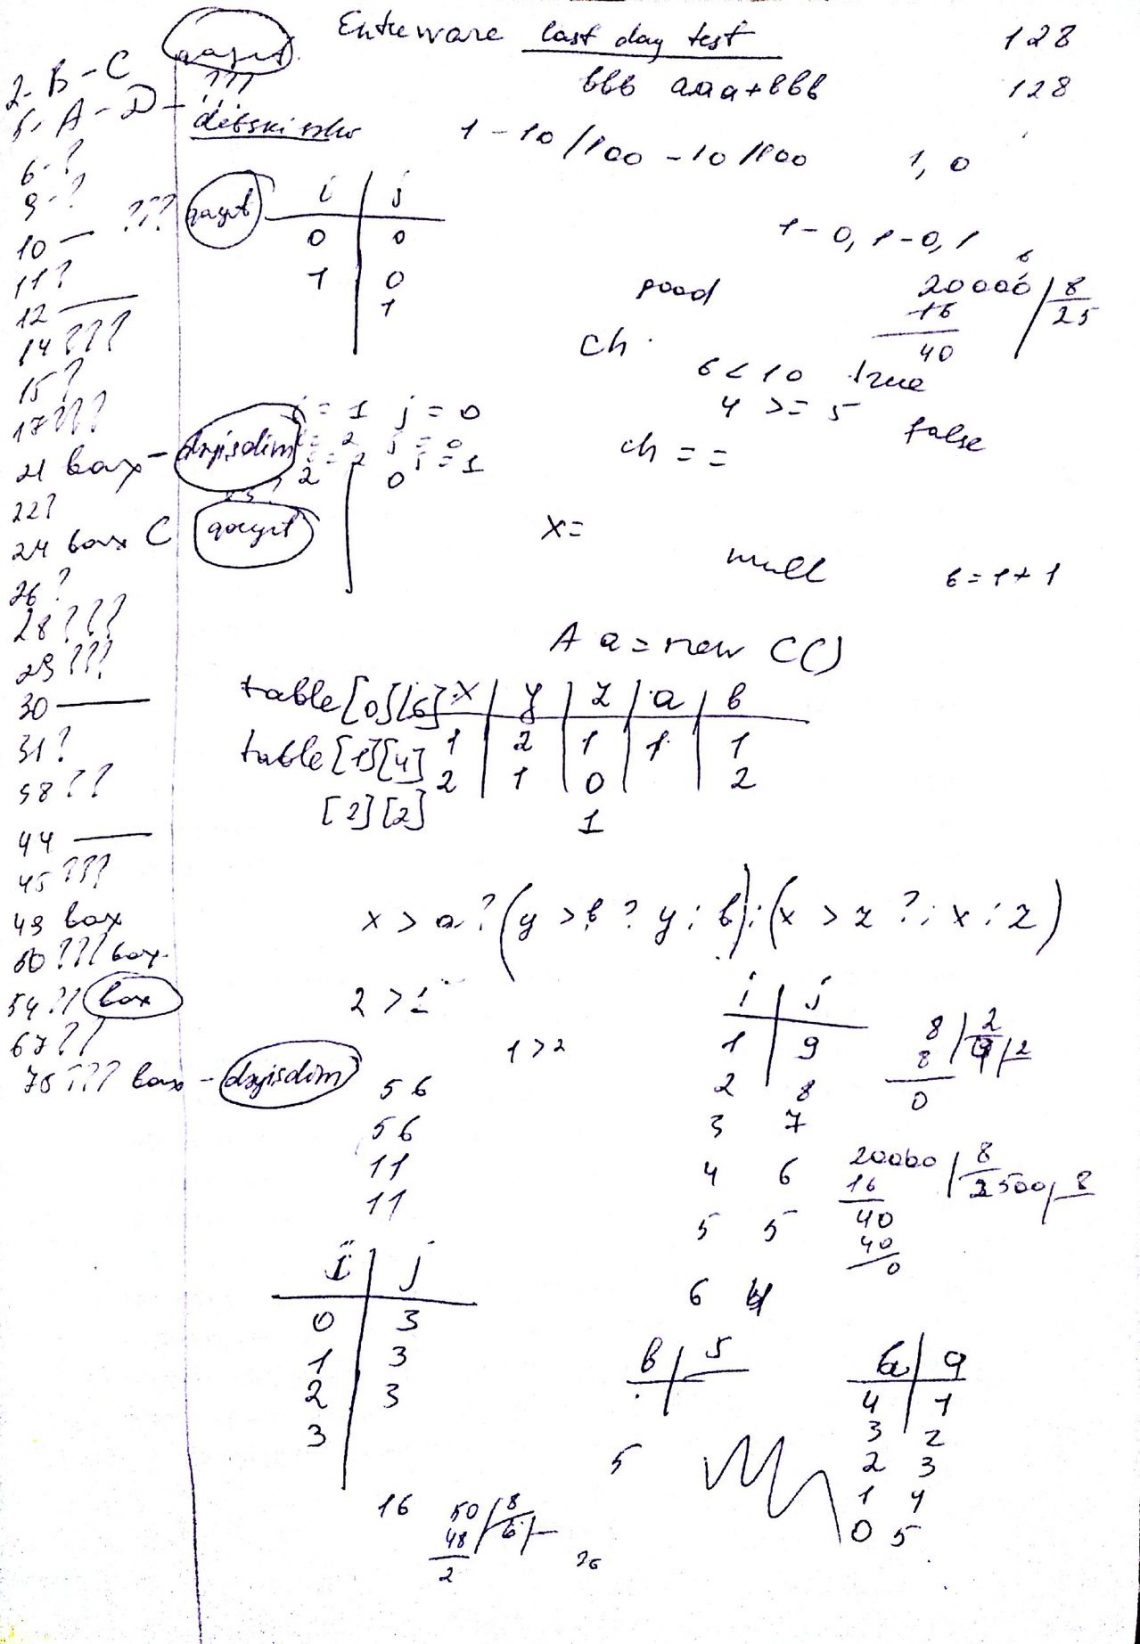 Enthuware last day test 128
qayıt
2. B - C
bbb aaa+bbb 128
5. A - D - ???
1 - 10/100 - 10/100 1, 0
6 - ?
9 - ?
10 — ??? qayıt
i j
0 0
1 0
1
1 - 0, 1 - 0, 1
11?
12 —
14 ???
15?
17 ???
good
20000 / 8
16 25
40
ch
6 < 10 true
4 >= 5 false
i = 1 j = 0
i = 2 j = 0
i = 2 j = 1
2 0
21 bax - dəyişdim
ch = =
22?
24 bax C qayıt
x =
null
b = 1 + 1
26?
28 ???
29 ???
30 —
31?
38 ??
44 —
45 ???
49 bax
50 ??? bax
54 ?? bax
67 ??
76 ??? bax - dəyişdim
A a = new C()
table[0][6]
table[1][4]
[2][2]
x y z a b
1 2 1 1 1
2 1 0 2
1
x > a ? (y > b ? y : b) : (x > z ? : x : z)
2 > 1
1 > 2
56
56
11
11
i j
1 9
2 8
3 7
4 6
5 5
6 4
8 / 2
8
0
20000 / 8
16 2500 / 8
40
40
0
i j
0 3
1 3
2 3
3
b 5
5
a
4 1
3 2
2 3
1 4
0 5
16
50 / 8
48 6
2
26